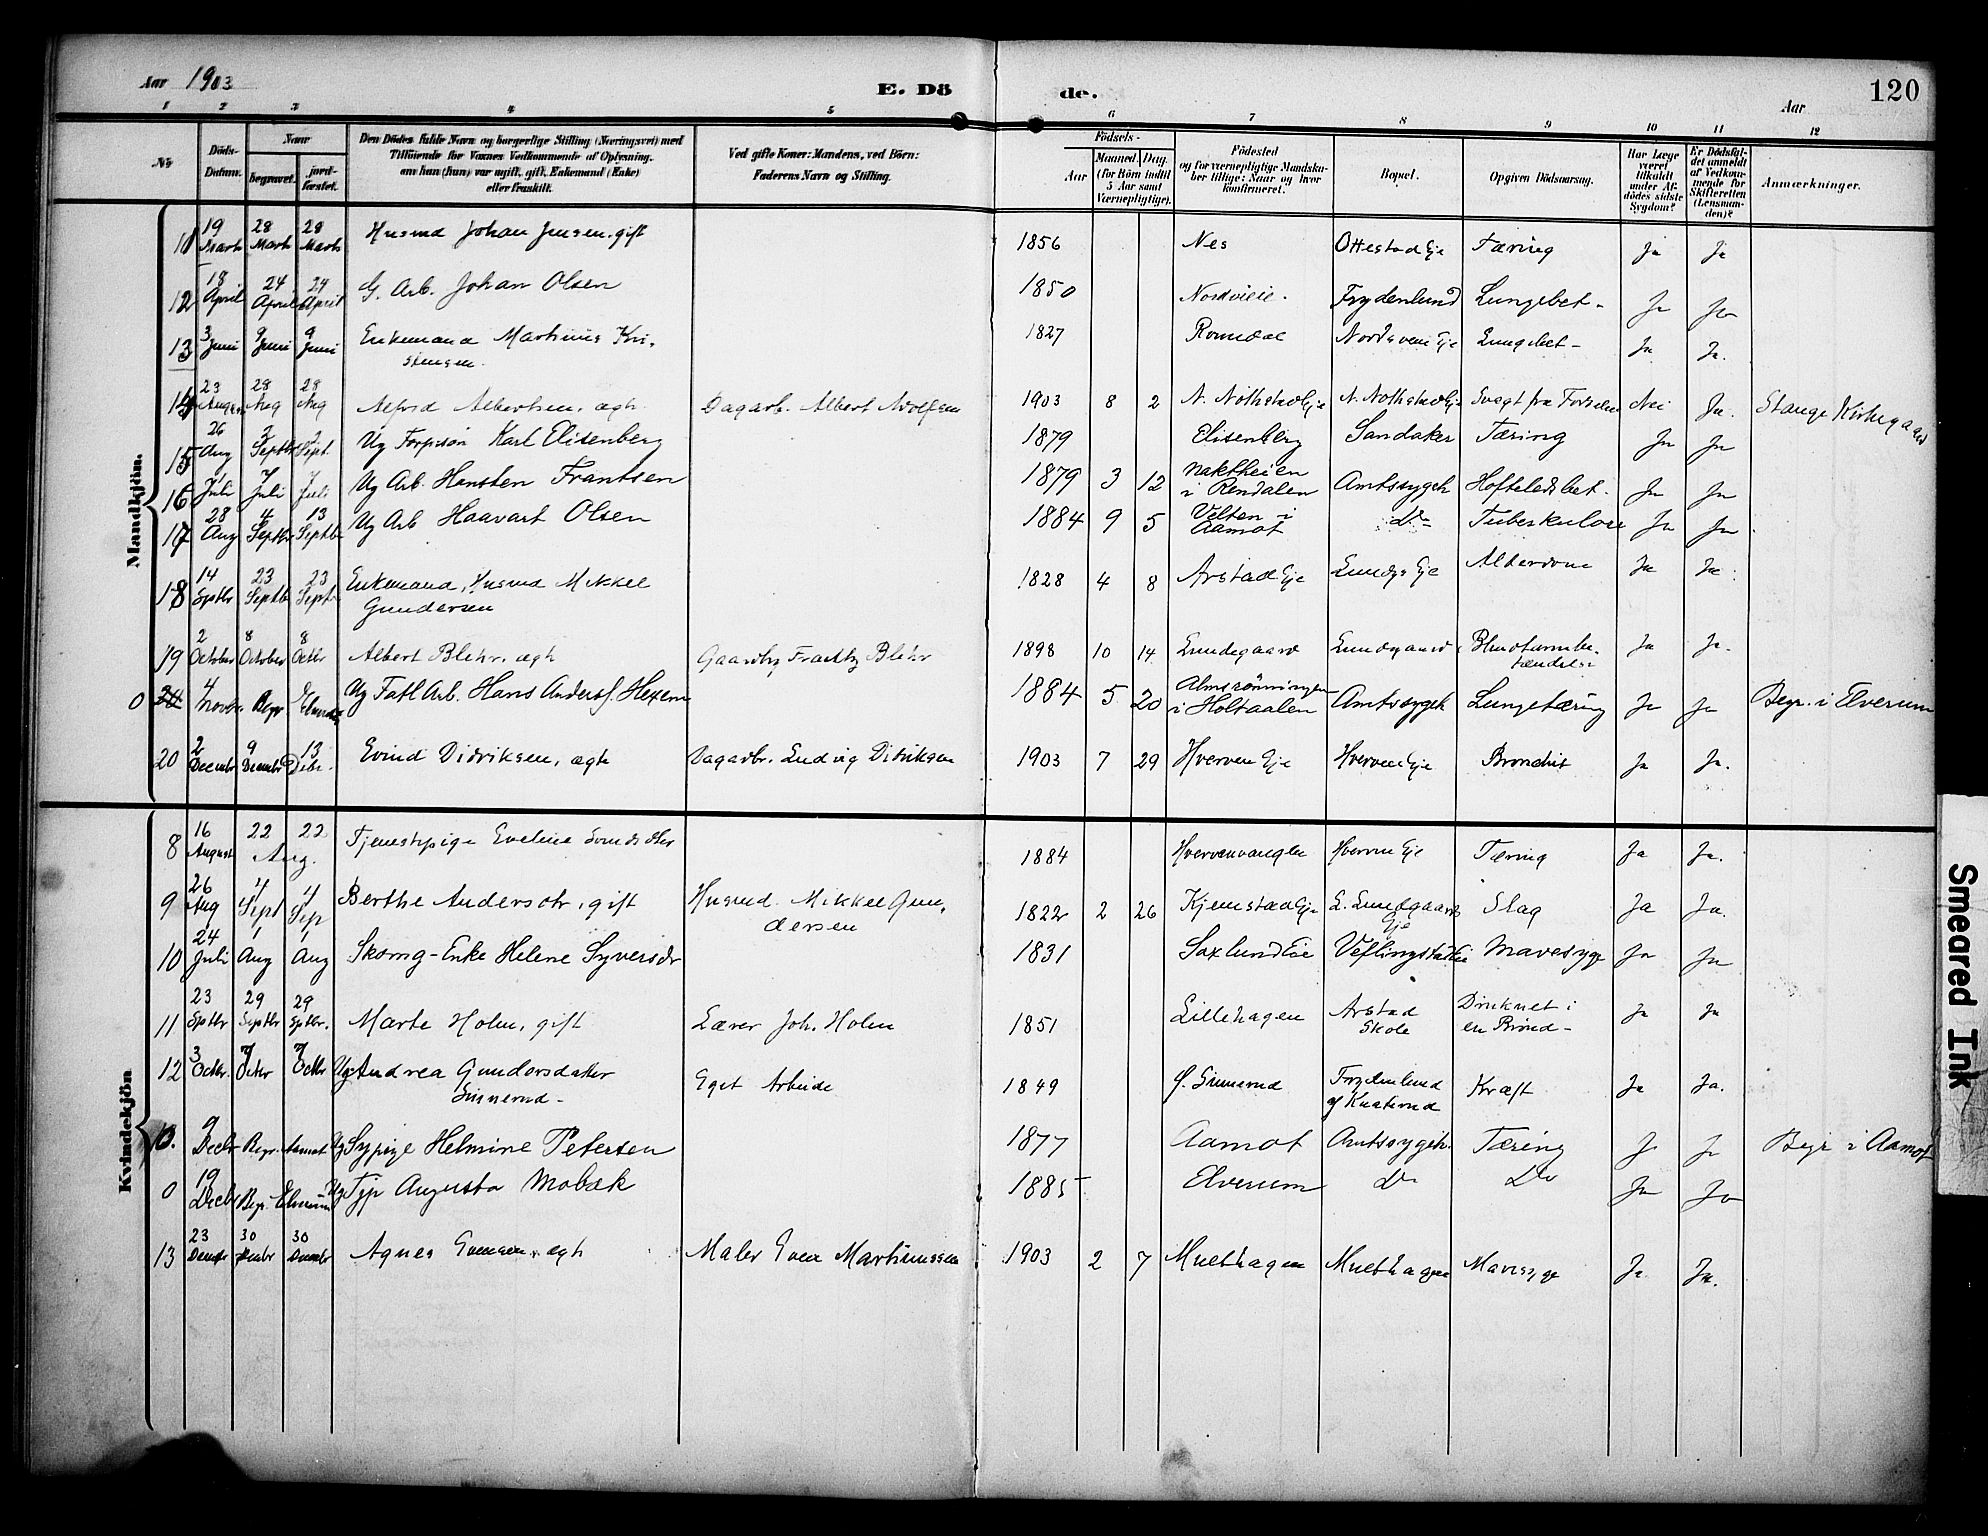 Aar 1903
E. Dö
de.
Aar
120
1 2 3 4 5 6 7 8 9 10 11 12
No
Döds-Datum.
Naar
begravet.
jordfæstet.
Den Dödes fulde Navn og borgerlige Stilling (Næringsvei) med
Tilföiende for Voxnes Vedkommende af Oplysning,
om han (hun) var ugift, gift, Enkemand (Enke)
eller fraskilt.
Ved gifte Koner: Mandens, ved Börn:
Faderens Navn og Stilling.
Födsels-
Aar
Maaned. Dag.
(for Börn indtil
5 Aar samt
Værnepligtige).
Födested
og for værnepligtige Mandskaber tillige: Naar og hvor
konfirmeret.
Bopæl.
Opgiven Dödsaarsag.
Har Læge
været
tilkaldt
under Afdödes sidste
Sygdom?
Er Dödsfaldet anmeldt
af Vedkommende for
Skifteretten
(Lensmanden)?
Anmærkninger.
Mandkjön.
11 19 Marts 28 Marts 28 Marts Husmd Johan Jensen, gift 1856 Nes Ottestad Eje Tæring Ja Ja
12 18 April 24 April 24 April G. Arb. Johan Olsen 1850 Nordvieie. Frydenlund Lungebet- Ja Ja
13 3 Juni 9 Juni 9 Juni Enkemand Martinus Kri-
stensen. 1827 Romedal Lungebet- Ja Ja.
14 23 August 28 Aug 28 Aug Alfred Albertsen, ægte Dagarb. Albert Adolfsen 1903 8 2 N. Nöthstad Eje N. Nothstad Eje Svagt fra Fødselen Nei Ja. Stange Kirkegaard
15 26 Aug 2 Septbr 2 Sept. Ug Karl Elisenberg 1879 Elisenberg Sandaker Tæring Ja Ja
16 1 Juli 7 Juli 7 Juli Ug Arb. Hansten Frantsen 1879 3 12 i Rendalen Amtssygeh Hofteledsbet. Ja Ja
17 28 Aug 4 Septbr 13 Septbr Ug Arb Haavart Olsen 1884 9 5 Velten i
Aamot Do Tuberkulose Ja Ja
18 14 Sptbr 23 Septbr 23 Septb Enkemand, Husmd Mikkel
Gundersen 1828 4 8 Arstad Eje Lundgs Eje Alderdom Ja Ja
19 2 October 8 October 8 Octbr Albert Blehr, ægte Gaardbr Fredrik Blehr 1898 10 14 Lundegaard Lundgaard Blindtarmbe-
tændelse Ja Ja.
0 4 Novbr Begr Elverum Ug Arb. Hans Andersf. Hexem 1884 5 20 Almsrönningen
i Holtaalen Amtssygeh Lungetæring Ja Ja Begr. i Elverum
20 2 Decembr 9 Decembr 13 Debr. Evind Didriksen, ægte Dagarbr. Ludvig Didriksen 1903 7 29 Hverven Eje Hverven Eje Bronchit Ja Ja.
Kvindekjön
8 16 August 22 22 Aug. Tjenestepige Eveline 1884 Hvervenvangen Hverven Eje Tæring Ja Ja.
9 26 Aug 4 Sept 4 Sep Berthe Andersdtr, gift Husmd. Mikkel Gun-
dersen 1822 2 26 Kjemstad Eje L. Lundgaards
Eje Slag Ja Ja.
10 24 Juli 1 Aug 1 Aug Skomg-Enke Helene Syversdr 1831 Saxlund Eie Veflingstad Eie Mavesyge Ja Ja
11 23 Sptbr 29 Septbr 29 Sptbr. Marte Holm, gift Lærer Joh. Holm 1851 Lillehagen Arstad
Skole Druknet i
en Brönd- Ja Ja
12 3 Octbr. 7 Octbr 7 Octbr Ug Andrea Gundersdatter
Sinnerud- Eget Arbeide 1849 Ø. Sinnerud Frydenlund
af Knaterud Kræft Ja Ja.
0. 9 Decbr Begr. Aamot Ug Sypige Helmine Petersen 1877 Aamot Amtssygeh. Tæring Ja Ja Begr i Aamot
0 19 Decbr Begr. Elverum Ug Tjp Augusta Mobæk 1885 Elverum Do Do Ja Ja
13 23 Decbr 30 Decbr 30 Decbr Agnes Evensen, ægte Maler Even Martinussen 1903 2 7 Muelhagen Muelhagen Mavesyge Ja Ja.
Smeared Ink